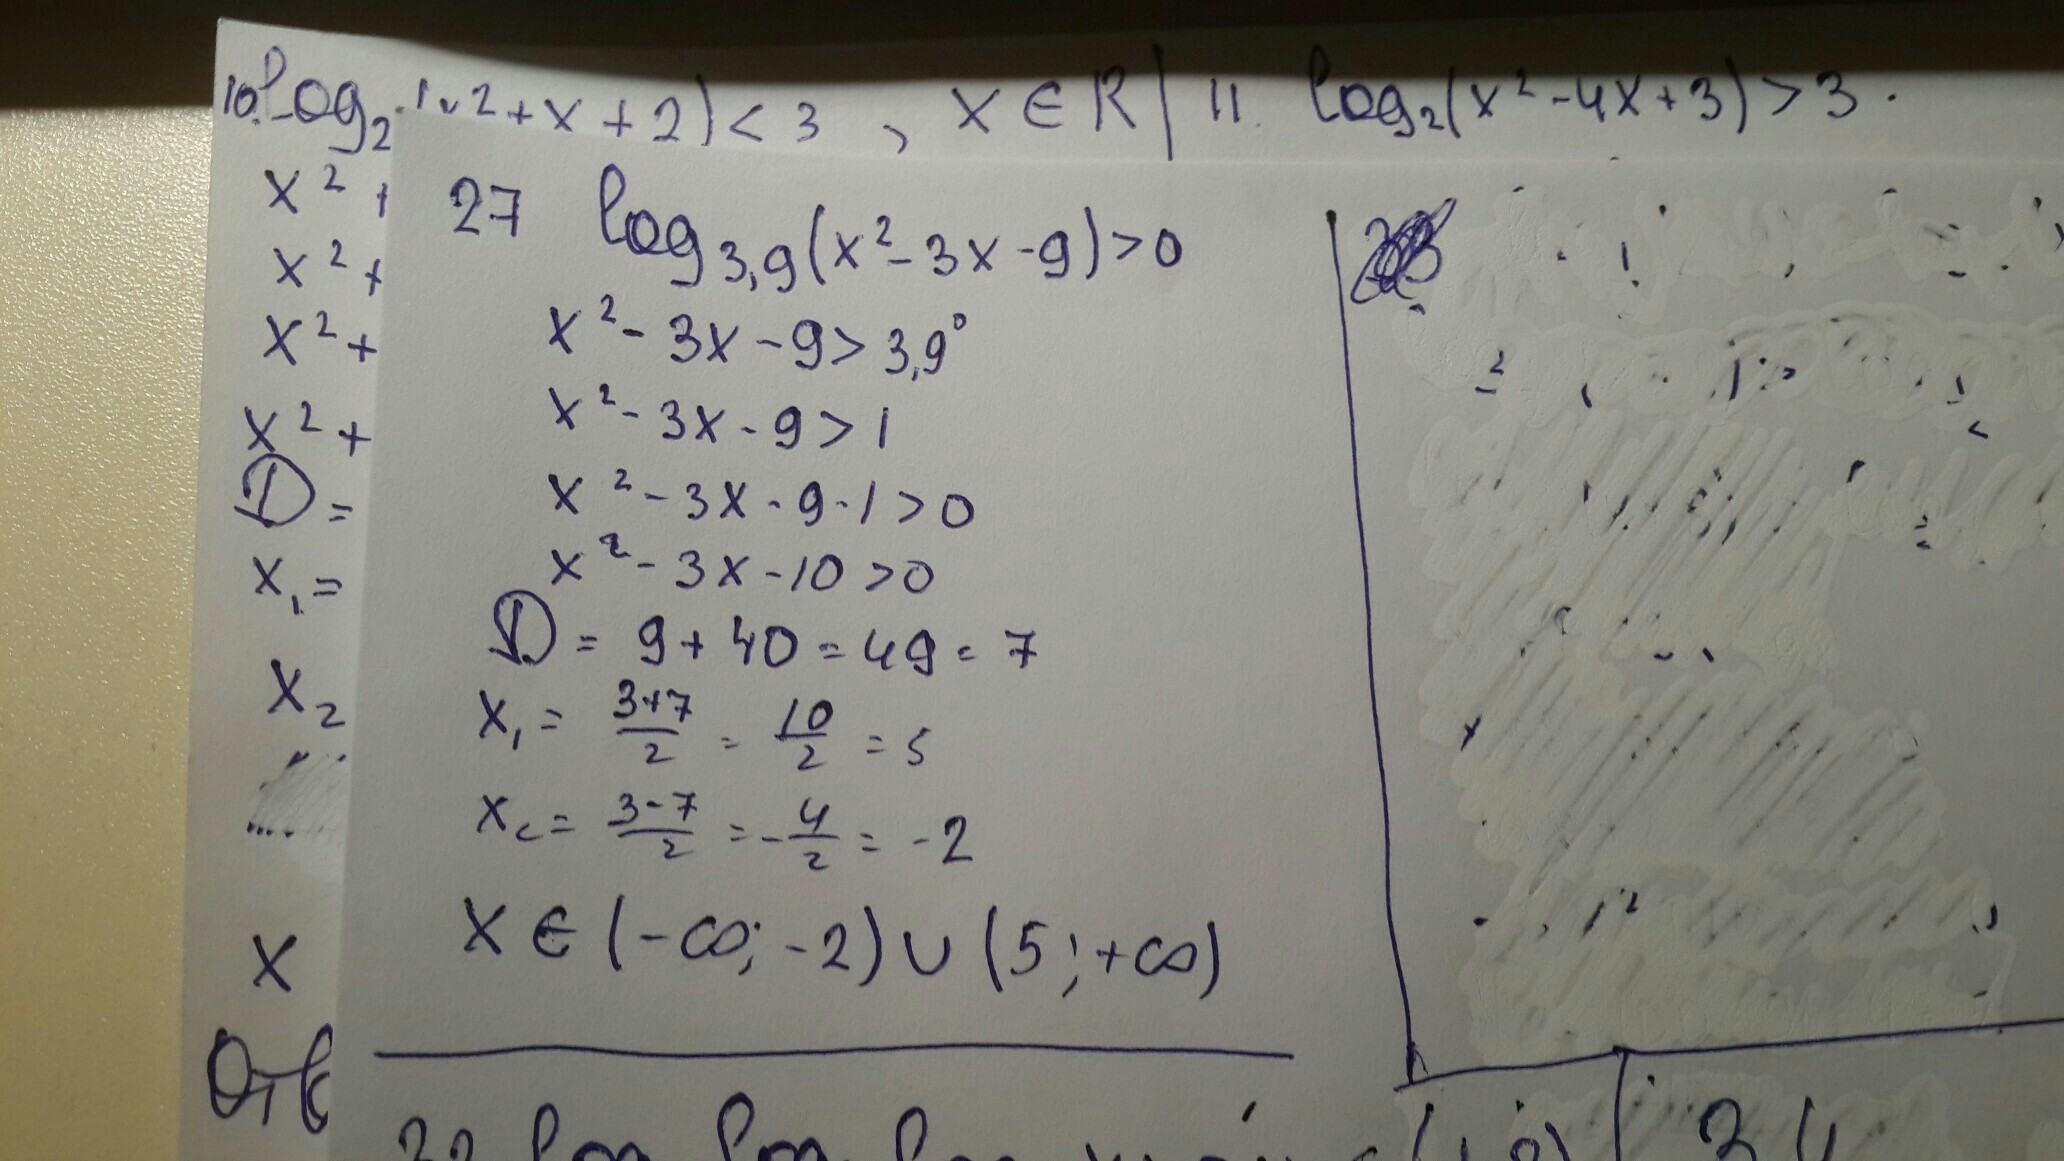 10. log₂(x²+x+2)<3 , x∈R | 11. log₂(x²-4x+3)>3.
x²+
x²+
x²+
x²+
D=
x₁=
x₂
x
Отв
27 log₃,₉(x²-3x-9)>0
x²-3x-9>3,9⁰
x²-3x-9>1
x²-3x-9-1>0
x²-3x-10>0
D=9+40=49=7
x₁= (3+7)/2 = 10/2 =5
x₂= (3-7)/2 =-4/2 = -2
x∈(-∞;-2)∪(5;+∞)
34